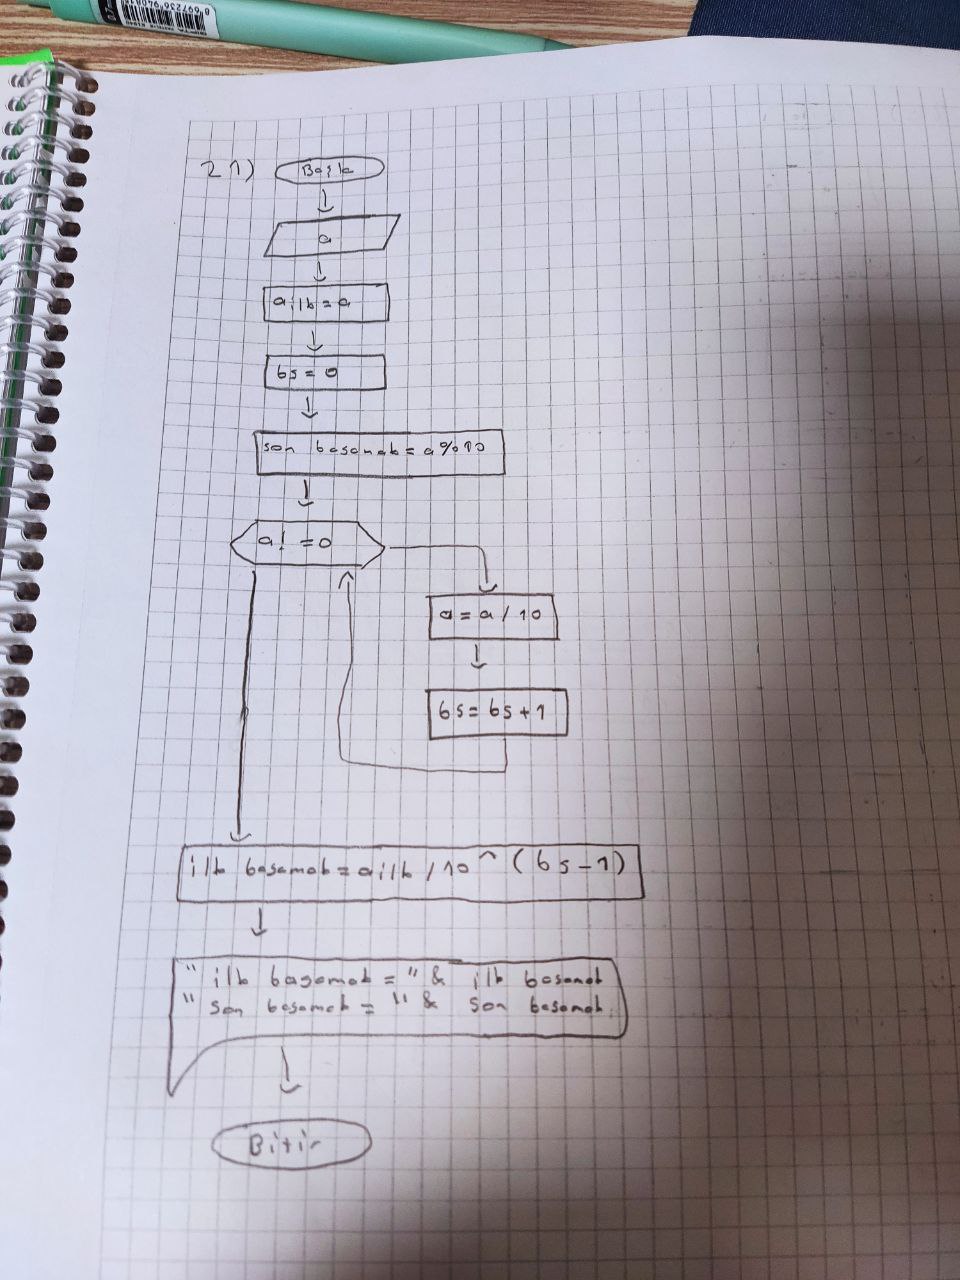 21) Başla
a
ailk = a
bs = 0
son basamak = a%10
a! = 0
a = a / 10
bs = bs + 1
ilk basamak = ailk / 10 ^ (bs - 1)
" ilk basamak = " & ilk basamak
" son basamak = " & son basamak
Bitir